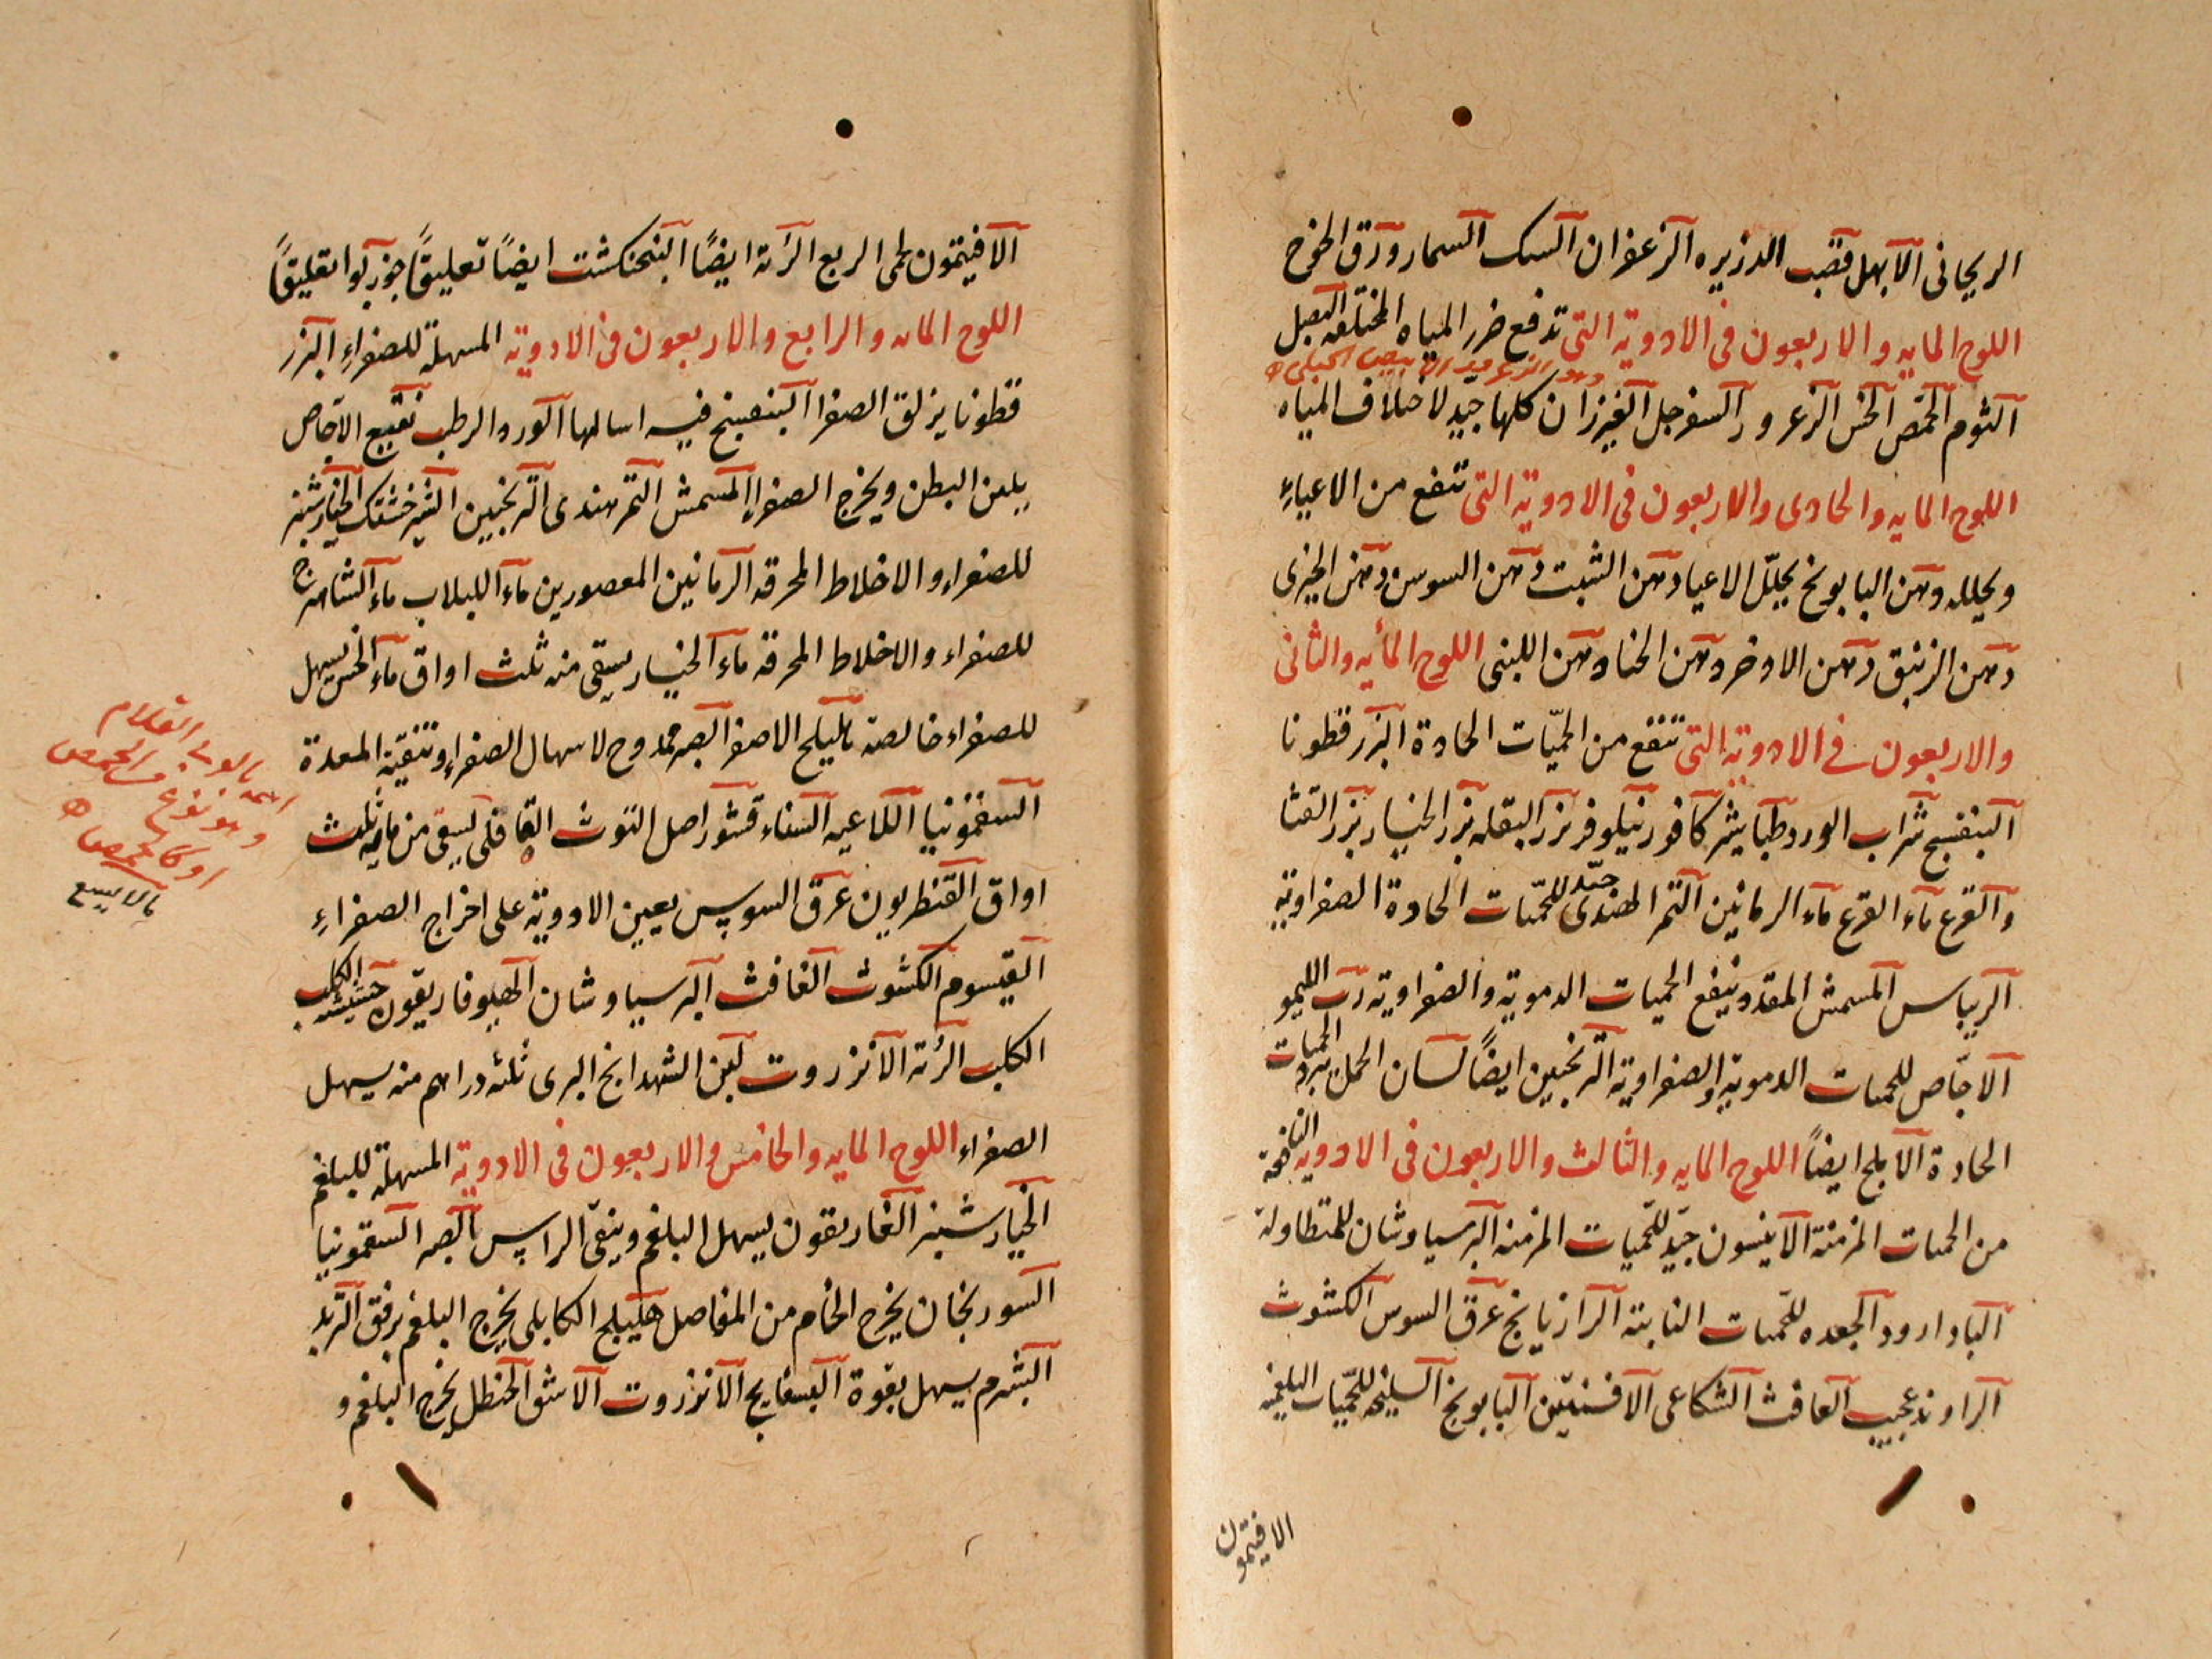 الريحانى الآبهل قصب الذريره الزعفران السك السمار ورق الخوخ
اللوح المايه والاربعون فى الادوية التى تدفع ضرر المياه المختلفه البصل
الثوم الحمص الخس الزعرور السفرجل كلها جيّد لاختلاف المياه
اللوح المايه والحادى والاربعون فى الادوية التى تنفع من الاعياءِ
ويحلله دهن البابونج يحلّل الاعيا دهن الشبت دهن السوسن دهن الخيرى
دهن الزنبق دهن الاذخر دهن الحنا دهن اللبنى اللوح المأيه والثانى
والاربعون فى الادوية التى تنفع من الحمّيات الحادة البزرقطونا
البنفسج شراب الورد طباشير كافور نيلوفر بزر البقله بزر الخيار بزر القثا
والقرع ماء القرع ماء الرمانين التمر الهندى جيّد للحمّيات الحادة الصفراوية
الريباس المشمش المقدد ينفع الحميات الدموية والصفراوية ربّ الليمو
الاجّاص للحميات الدموية والصفراوية الترنجبين ايضاً لسان الحمل يبرد الحميات
الحادة الآملج ايضاً اللوح المايه والثالث والاربعون فى الادوية النافعة
من الحميات المزمنة الآنيسون جيّد للحّميات المزمنه البرسياوشان للمتطاولة
الباداورد الجعده للحّميات النابتة الرازيانج عرق السوس الكشوث
الراوند عجيب الغافث الشكاعى الافسنتين البابونج السليخه للحّميات البلغميه
الافيتمون
الافيتمون لحمى الربع الرُتة ايضًا البنجنكشت ايضًا تعليقًا جوز بوا تعليقًا
اللوح المايه والرابع والاربعون فى الادوية المسهلة للصفراءِ البزر
قطونا يزلق الصفرا البنفسج فيه اسالها الورد الرطب نقيع الاجاص
يلين البطن ويخرج الصفراءِ المشمش التمرهندى الترنجبين الشيرخشتك الخيارشنبر
للصفراءِ والاخلاط المحرقه الرمانين المعصورين ماء اللبلاب ماء الشاهترج
للصفراء والاخلاط المحرقة ماء الخيار يسقى منه ثلث اواق ماء الخس يسهل
للصفراء خالصة هليلج الاصفر الصبر ممدوح لاسهال الصفراءِ وتنقية المعدة
السقمونيا اللاعيه السناء قشور اصل التوث القاقلى يسقى من مايه ثلث
اواق القنطريون عرق السوس يعين الادوية على اخراج الصفراءِ
القيسوم الكشوث الغافث البرسياوشان الهيوفاريقون حشيشة الكلب
الكلب الرُتة الآنزروت لبن الشهدانج البرى ثلثه دراهم منه يسهل
الصفراء اللوح المايه والخامس والاربعون فى الادوية المسهلة للبلغم
الخيارشنبر الغاريقون يسهل البلغم وينقى الراس الصبر السقمونيا
السورنجان يخرج الخام من المفاصل هليلج الكابلى يخرج البلغم برفق التربد
الشبرم يسهل بقوة البسفايج الآنزروت الآشق الحنظل يخرج البلغم و
القلام
وهو نوع من الحمض
او كالحمض